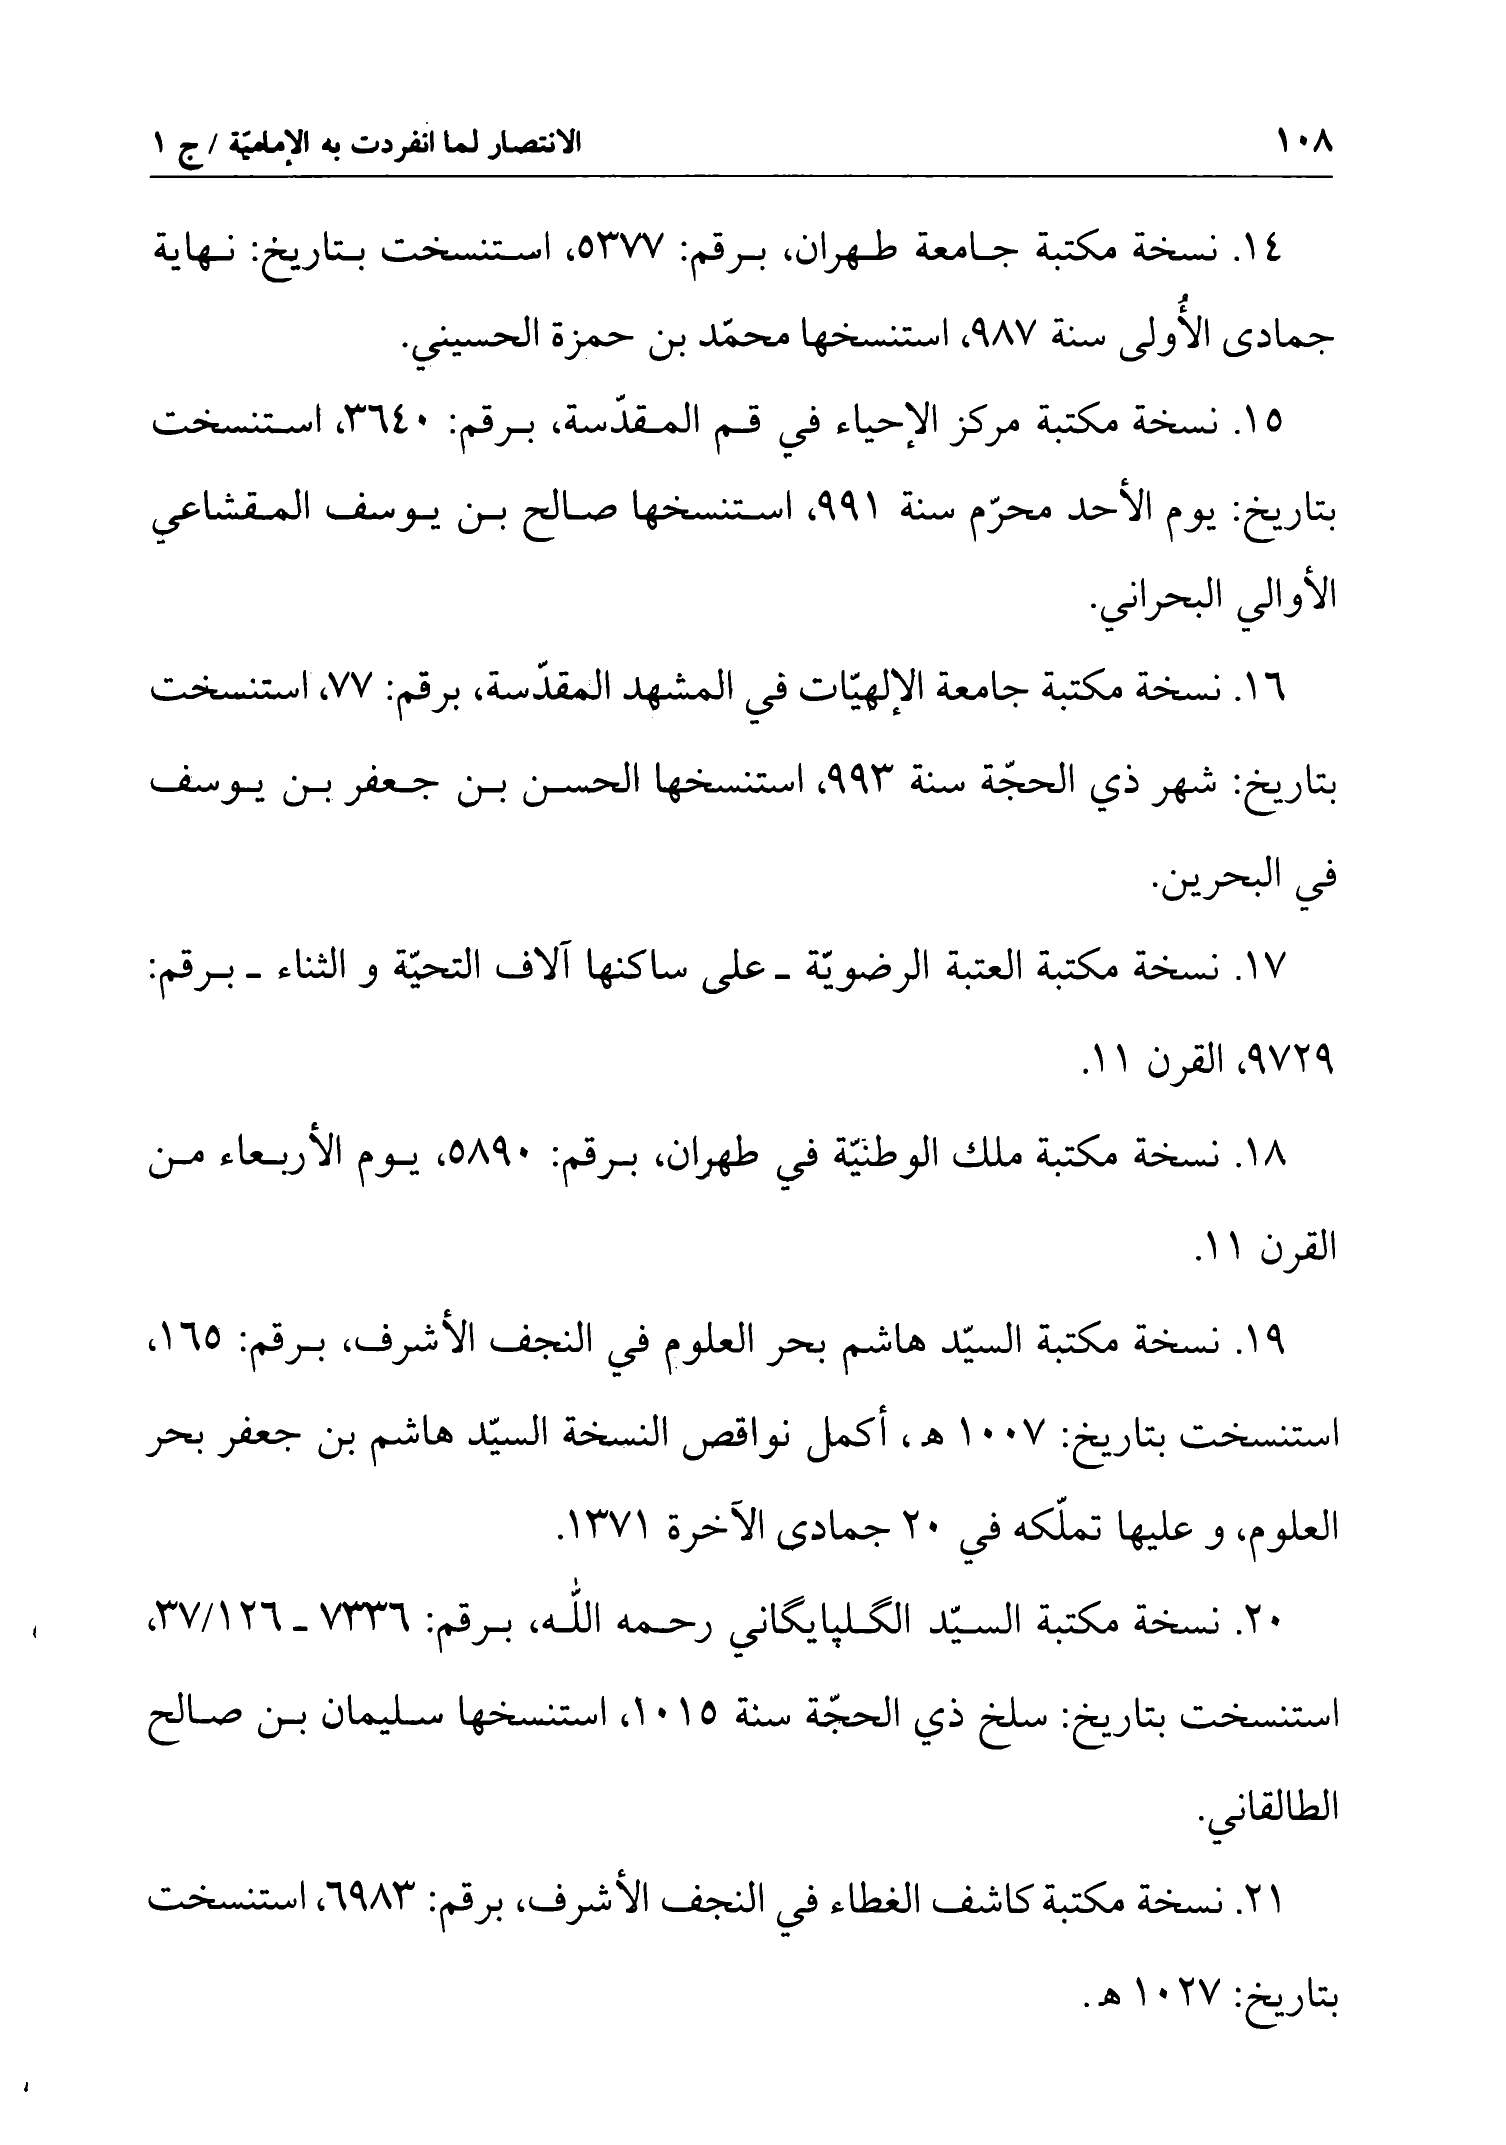 ١٠٨ الانتصار لما انفردت به الإماميّة / ج ١
١٤. نسخة مكتبة جامعة طهران، برقم: ٥٣٧٧، استنسخت بتاريخ: نهاية
جمادى الأُولى سنة ٩٨٧، استنسخها محمّد بن حمزة الحسيني.
١٥. نسخة مكتبة مركز الإحياء في قم المقدّسة، برقم: ٣٦٤٠، استنسخت
بتاريخ: يوم الأحد محرّم سنة ٩٩١، استنسخها صالح بن يوسف المقشاعي
الأوالي البحراني.
١٦. نسخة مكتبة جامعة الإلهيّات في المشهد المقدّسة، برقم: ٧٧، استنسخت
بتاريخ: شهر ذي الحجّة سنة ٩٩٣، استنسخها الحسن بن جعفر بن يوسف
في البحرين.
١٧. نسخة مكتبة العتبة الرضويّة ـ على ساكنها آلاف التحيّة و الثناء ـ برقم:
٩٧٢٩، القرن ١١.
١٨. نسخة مكتبة ملك الوطنيّة في طهران، برقم: ٥٨٩٠، يوم الأربعاء من
القرن ١١.
١٩. نسخة مكتبة السيّد هاشم بحر العلوم في النجف الأشرف، برقم: ١٦٥،
استنسخت بتاريخ: ١٠٠٧ ه‍ ، أكمل نواقص النسخة السيّد هاشم بن جعفر بحر
العلوم، و عليها تملّكه في ٢٠ جمادى الآخرة ١٣٧١.
٢٠. نسخة مكتبة السيّد الگلپايگاني رحمه اللّٰه، برقم: ٧٣٣٦ ـ ٣٧/١٢٦،
استنسخت بتاريخ: سلخ ذي الحجّة سنة ١٠١٥، استنسخها سليمان بن صالح
الطالقاني.
٢١. نسخة مكتبة كاشف الغطاء في النجف الأشرف، برقم: ٦٩٨٣، استنسخت
بتاريخ: ١٠٢٧ ه‍ .